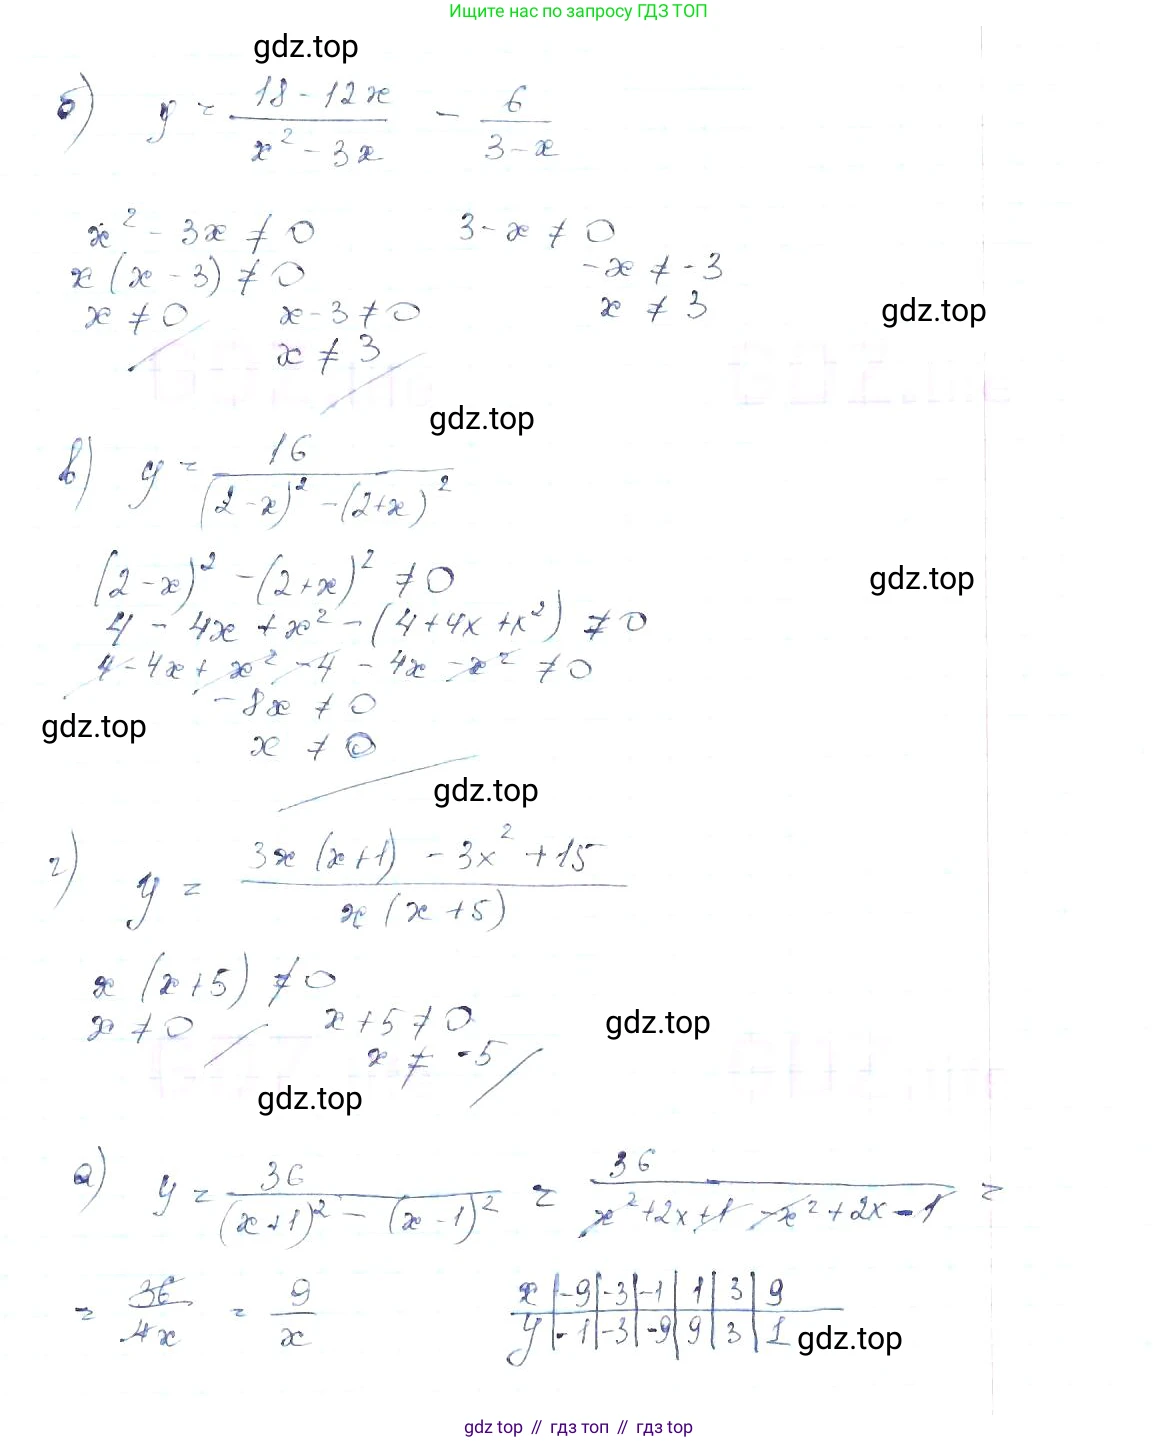 Ищите нас по запросу ГДЗ ТОП
gdz.top
б) y = (18 - 12x)/(x² - 3x) - 6/(3 - x)
x² - 3x ≠ 0   3 - x ≠ 0
x(x - 3) ≠ 0   -x ≠ -3
x ≠ 0   x - 3 ≠ 0   x ≠ 3
gdz.top
x ≠ 3
gdz.top
в) y = 16/((2 - x)² - (2 + x)²)
(2 - x)² - (2 + x)² ≠ 0
gdz.top
4 - 4x + x² - (4 + 4x + x²) ≠ 0
4 - 4x + x² - 4 - 4x - x² ≠ 0
-8x ≠ 0
gdz.top
x ≠ 0
gdz.top
г) y = (3x(x + 1) - 3x² + 15)/(x(x + 5))
x(x + 5) ≠ 0
x ≠ 0   x + 5 ≠ 0
gdz.top
x ≠ -5
gdz.top
а) y = 36/((x + 1)² - (x - 1)²) = 36/(x² + 2x + 1 - x² + 2x - 1) =
= 36/4x = 9/x
x | -9 | -3 | -1 | 1 | 3 | 9
y | -1 | -3 | -9 | 9 | 3 | 1
gdz.top
gdz top // гдз топ // гдз top